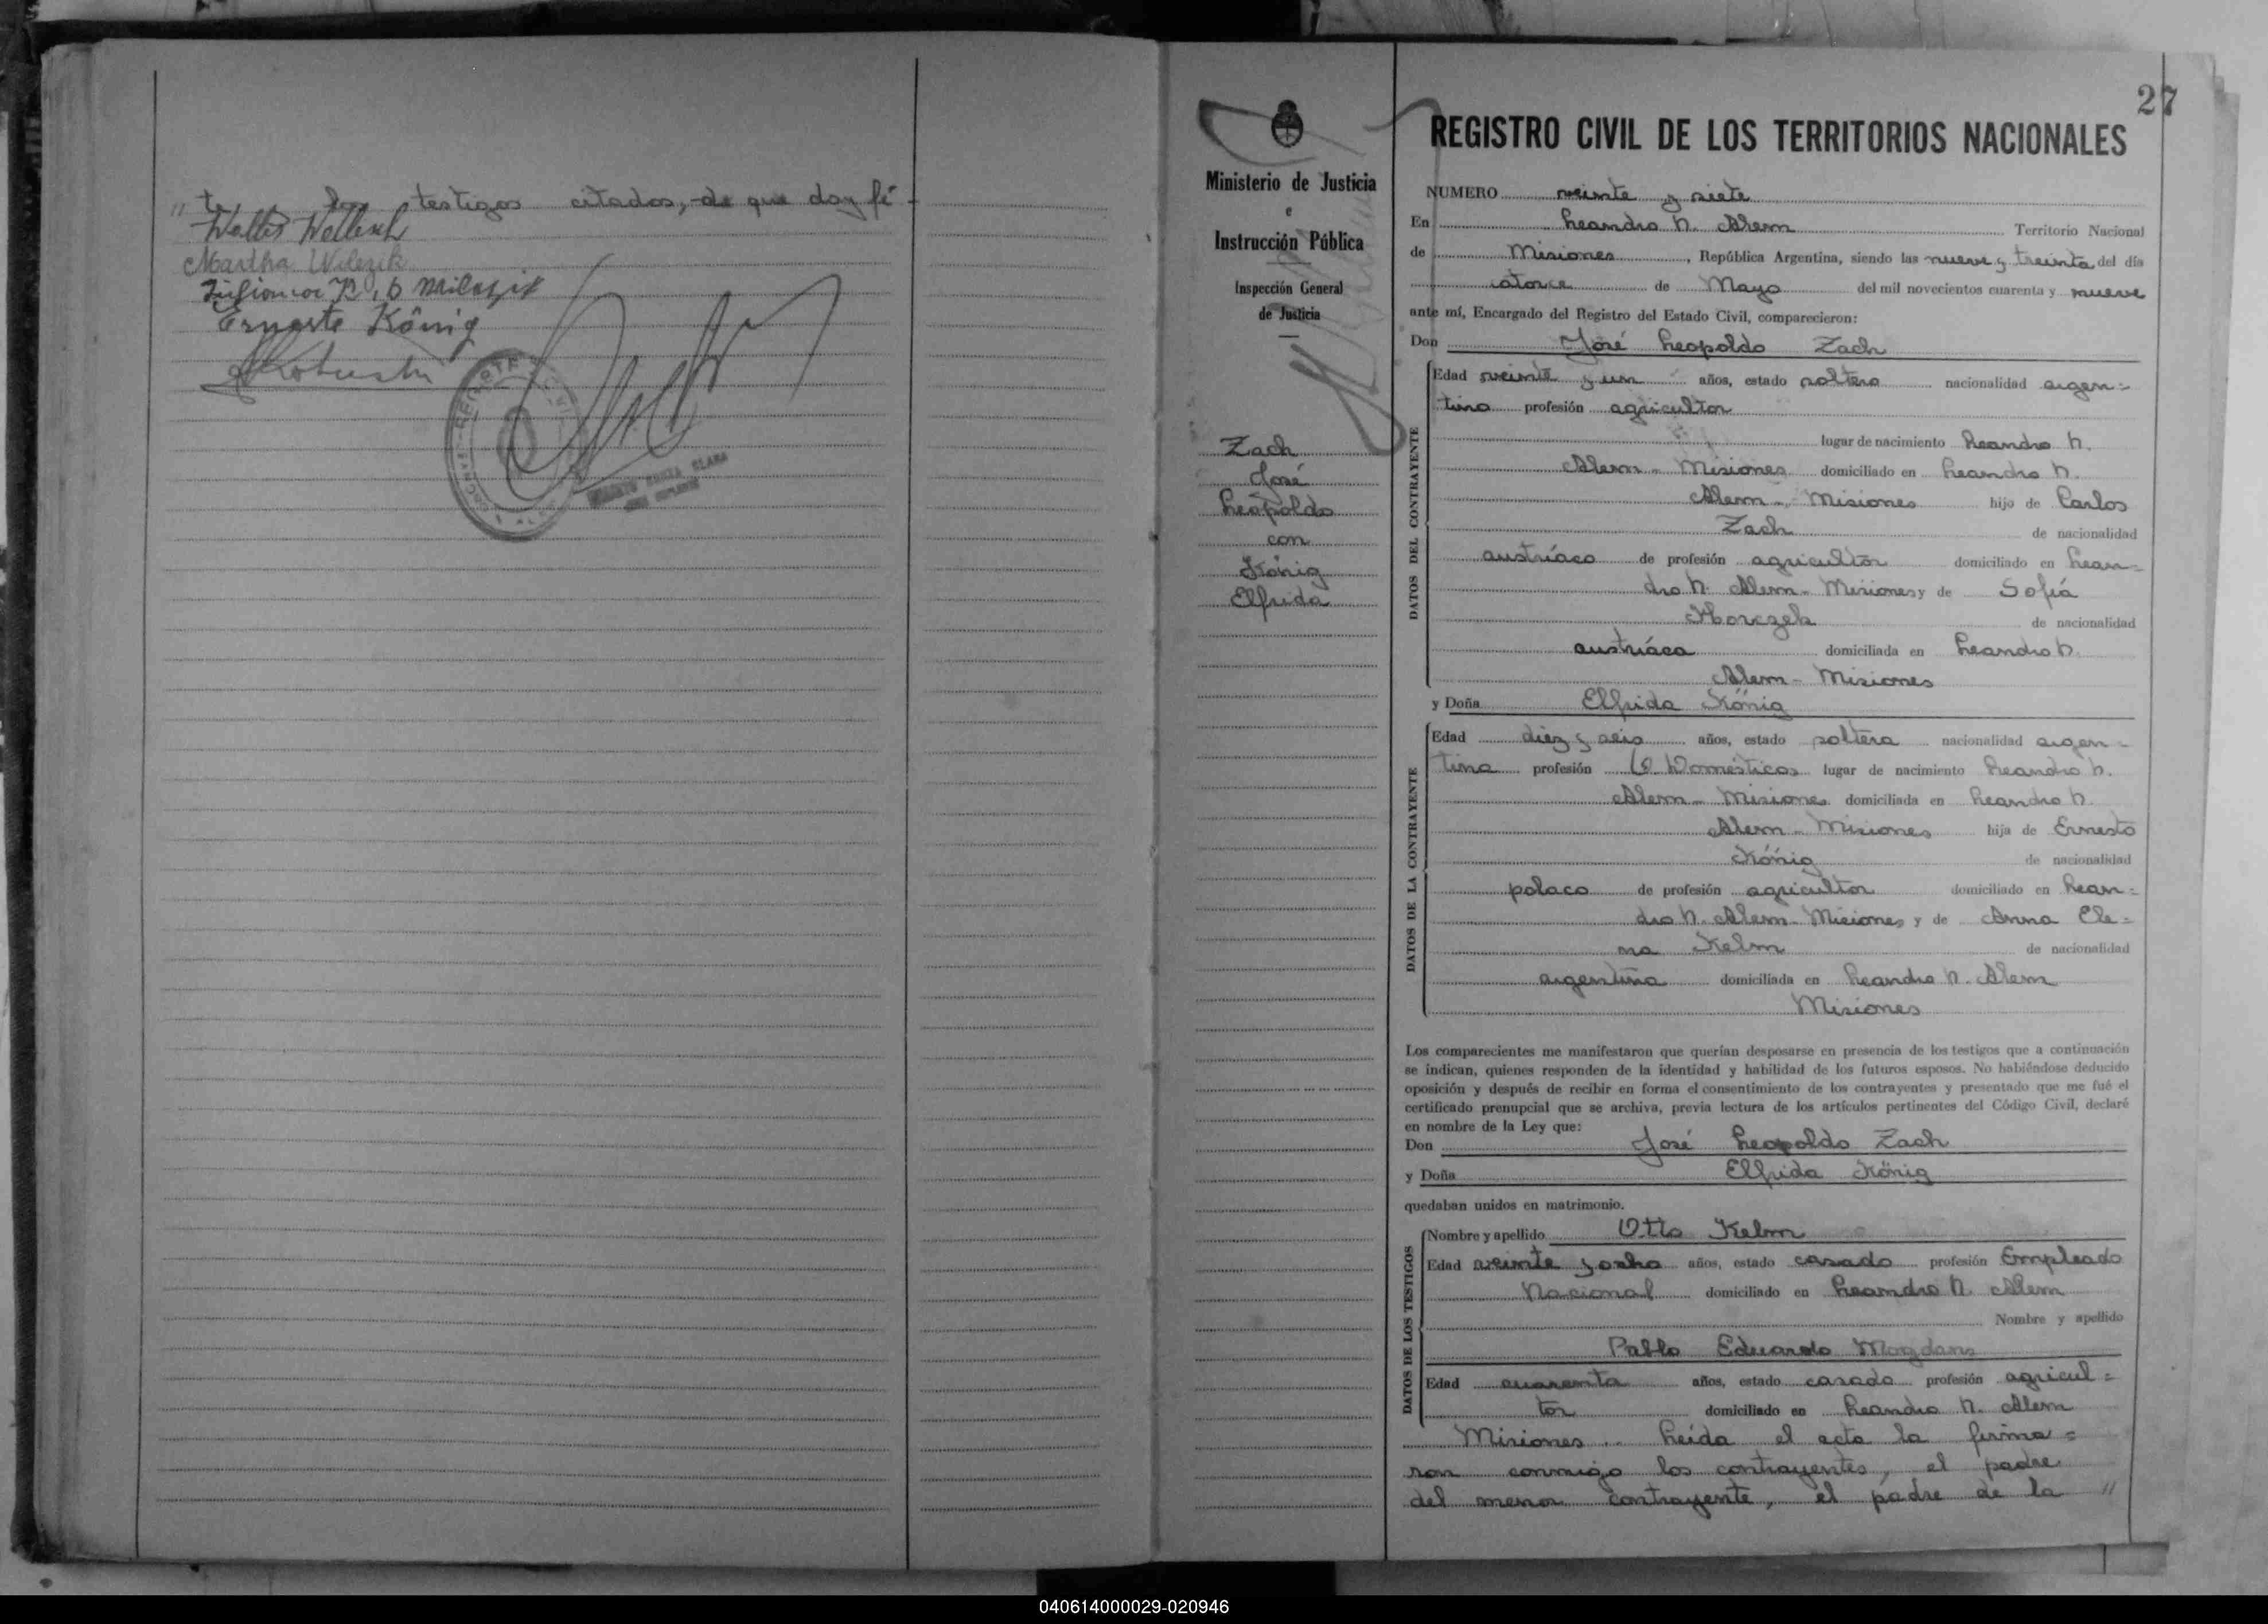 " te, los testigos citados, de que doy fé -
Martha Wilczik
Ernesto König
27
Ministerio de Justicia
e
Instrucción Pública
Inspección General
de Justicia
Zach
José
Leopoldo
con
König
Elfrida
REGISTRO CIVIL DE LOS TERRITORIOS NACIONALES
NUMERO veinte y siete
En Leandro N. Alem Territorio Nacional
de Misiones, República Argentina, siendo las nueve y treinta del día
catorce de Mayo del mil novecientos cuarenta y nueve
ante mí, Encargado del Registro del Estado Civil, comparecieron:
Don José Leopoldo Zach
DATOS DEL CONTRAYENTE
Edad veinte y un años, estado soltero nacionalidad argen=
tino profesión agricultor
lugar de nacimiento Leandro N.
Alem - Misiones domiciliado en Leandro N.
Alem - Misiones hijo de Carlos
Zach de nacionalidad
austríaco de profesión agricultor domiciliado en Lean=
dro N. Alem - Misiones y de Sofía
Horczek de nacionalidad
austríaca domiciliada en Leandro N.
Alem - Misiones
y Doña Elfrida König
DATOS DE LA CONTRAYENTE
Edad diez y seis años, estado soltera nacionalidad argen=
tina profesión Q. Domésticos lugar de nacimiento Leandro N.
Alem - Misiones domiciliada en Leandro N.
Alem - Misiones hija de Ernesto
König de nacionalidad
polaco de profesión agricultor domiciliado en Lean=
dro N. Alem - Misiones y de Anna Ele=
na Kelm de nacionalidad
argentina domiciliada en Leandro N. Alem
Misiones
Los comparecientes me manifestaron que querían desposarse en presencia de los testigos que a continuación
se indican, quienes responden de la identidad y habilidad de los futuros esposos. No habiéndose deducido
oposición y después de recibir en forma el consentimiento de los contrayentes y presentado que me fué el
certificado prenupcial que se archiva, previa lectura de los artículos pertinentes del Código Civil, declaré
en nombre de la Ley que:
Don José Leopoldo Zach
y Doña Elfrida König
quedaban unidos en matrimonio.
DATOS DE LOS TESTIGOS
Nombre y apellido Otto Kelm
Edad veinte y ocho años, estado casado profesión Empleado
Nacional domiciliado en Leandro N. Alem
Nombre y apellido
Pablo Eduardo Mogdans
Edad cuarenta años, estado casado profesión agricul=
tor domiciliado en Leandro N. Alem
Misiones. Leída el acta la firma=
ron conmigo los contrayentes, el padre
del menor contrayente, el padre de la "
040614000029-020946